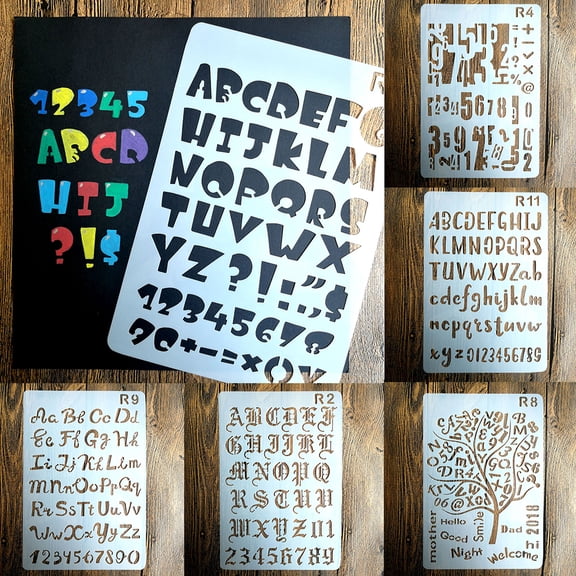 12345
ABCD
HIJ
?!$
R
ABCDEF
HIJKLM
NOPQRS
TUVWX
YZ?!:;"$
12345678
90+-=×()
R4
R11
ABCDEFGHIJ
KLMNOPQRS
TUVWXYZab
cdefghijklm
nopqrstuvw
xyz0123456789
R9
Aa Bb Cc Dd
Ee Ff Gg Hh
Ii Jj Kk Ll m
m Nn Oo Pp Qq
Rr Ss Tt Uu Vv
Ww Xx Yy Zz
1234567890
R2
ABCDEF
GHIJKL
MNOPQ
RSTUV
WXYZ01
23456789
R8
mother
Hello
Good
Night
Smile
Dad
Welcome
Hi 2018